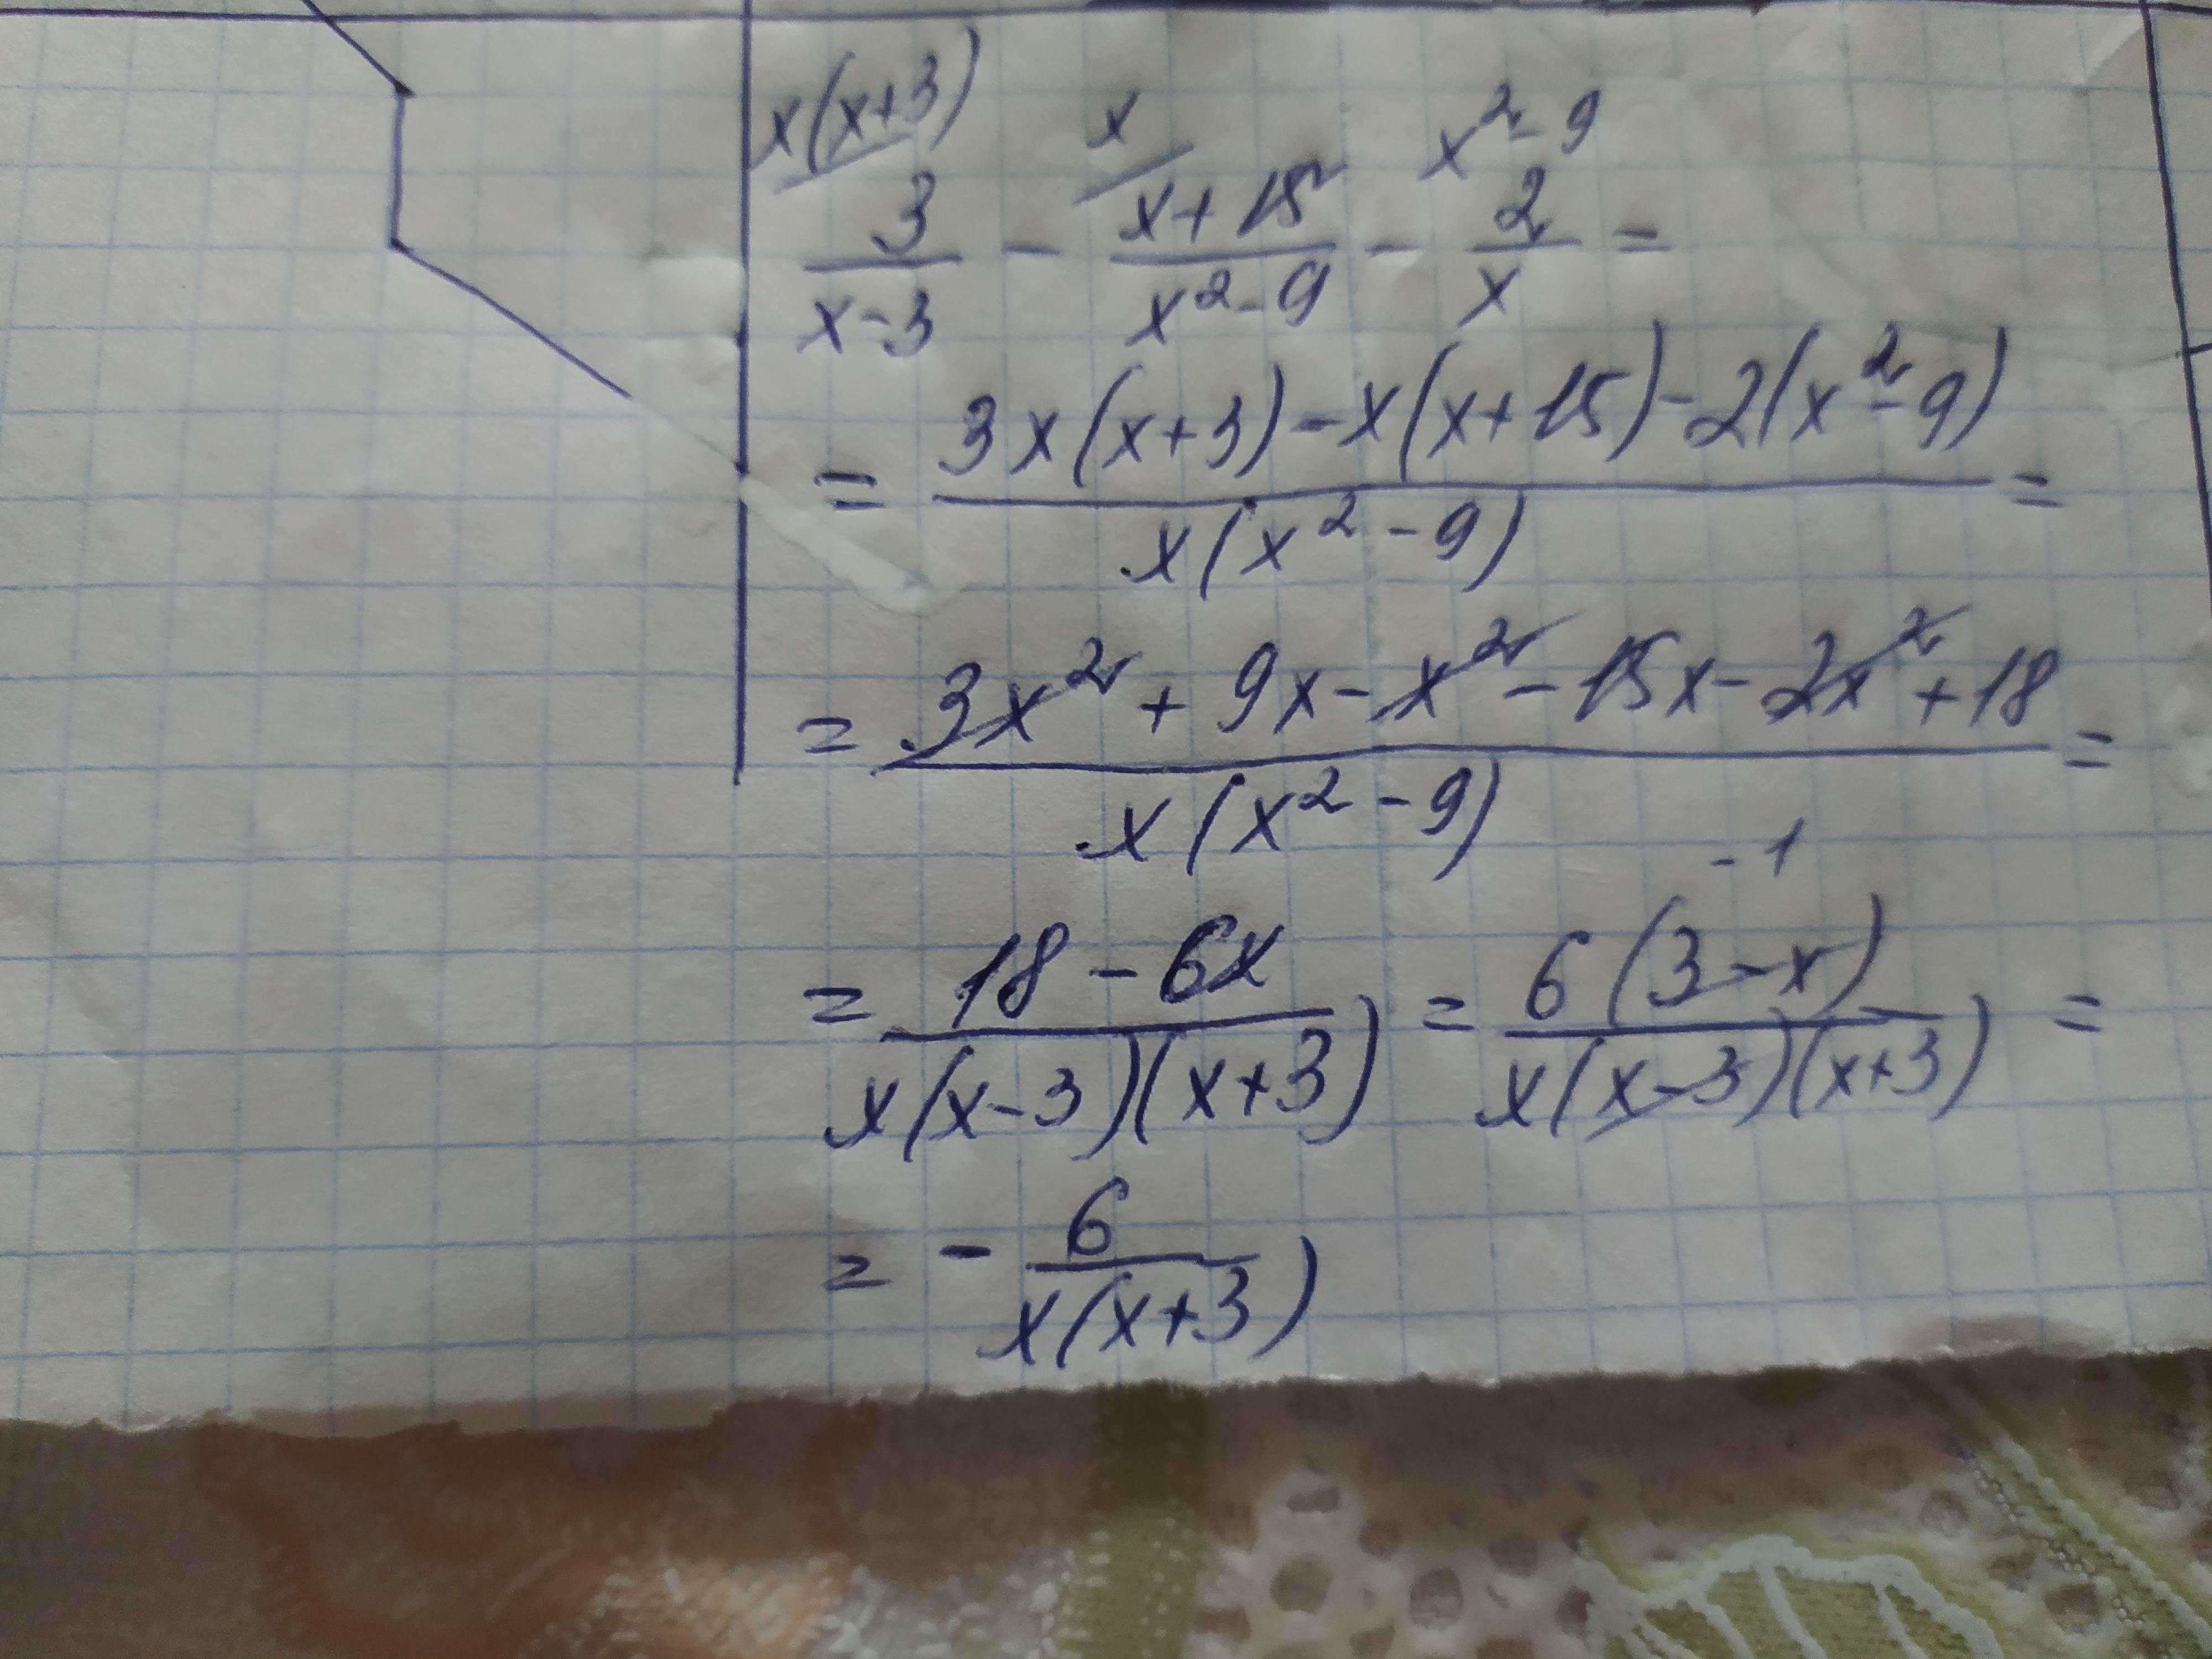 x(x+3) x x²-9
3/(x-3) - (x+15)/(x²-9) - 2/x =
= (3x(x+3)-x(x+15)-2(x²-9))/(x(x²-9)) =
= (3x²+9x-x²-15x-2x²+18)/(x(x²-9)) =
-1
= (18-6x)/(x(x-3)(x+3)) = 6(3-x)/(x(x-3)(x+3)) =
= - 6/(x(x+3))